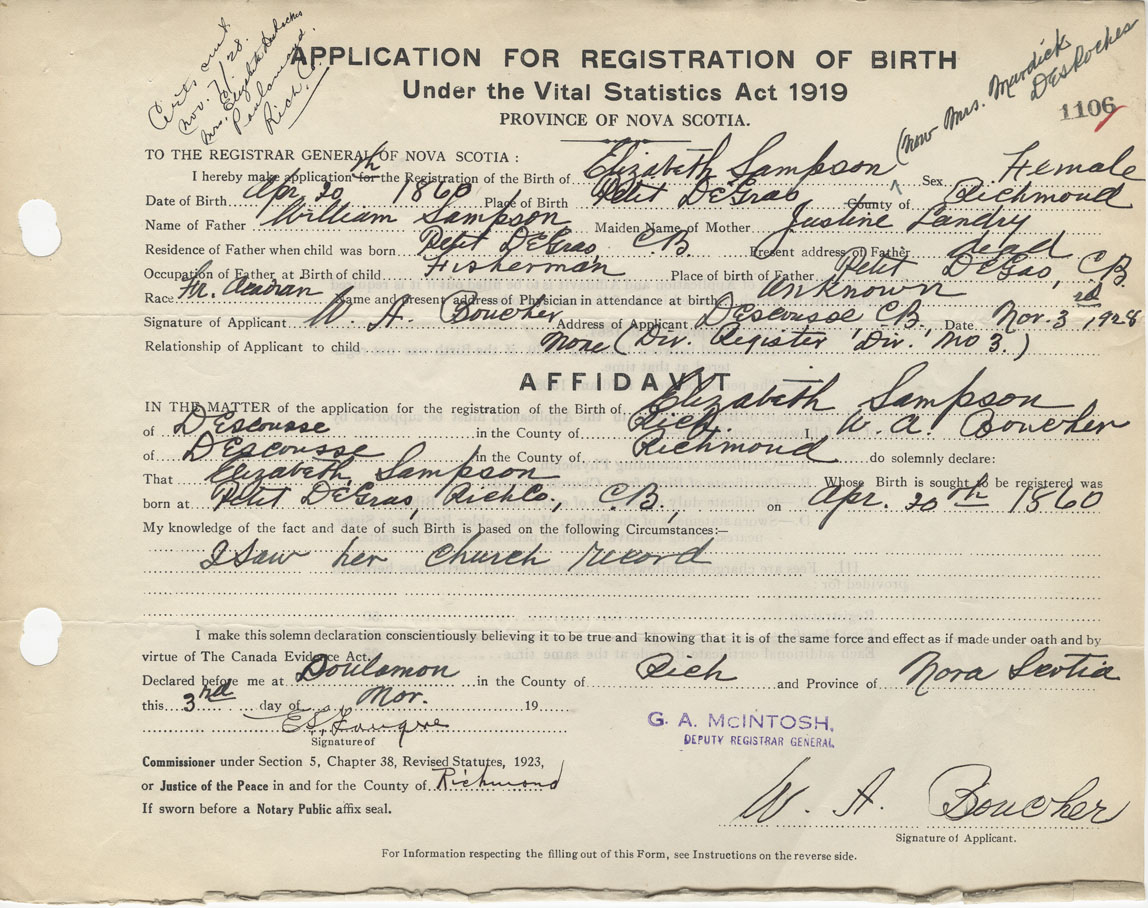 Certs sent
Nov. 7/28.
Mrs. Elizabeth DesRoches
Poulamond.
Rich. Co.
APPLICATION FOR REGISTRATION OF BIRTH
Under the Vital Statistics Act 1919
PROVINCE OF NOVA SCOTIA.
(now Mrs. Murdick
DesRoches
1106
TO THE REGISTRAR GENERAL OF NOVA SCOTIA :
I hereby make application for the Registration of the Birth of Elizabeth Sampson Sex Female
Date of Birth Apr 20th 1860 Place of Birth Petit DeGras County of Richmond
Name of Father William Sampson Maiden Name of Mother Justine Landry
Residence of Father when child was born Petit DeGras, C.B. Present address of Father dead
Occupation of Father at Birth of child Fisherman Place of birth of Father Petit DeGras, C.B.
Race Fr. Acadian Name and present address of Physician in attendance at birth Unknown
Signature of Applicant W. A. Boucher Address of Applicant Descousse C.B. Date Nov. 3rd, 1928
Relationship of Applicant to child None (Div. Register Div. No 3.)
AFFIDAVIT
IN THE MATTER of the application for the registration of the Birth of Elizabeth Sampson
of DEscousse in the County of Rich. I, W. A. Boucher
of DEscousse in the County of Richmond do solemnly declare:
That Elizabeth Sampson Whose Birth is sought to be registered was
born at Petit DeGras, Rich Co., C.B., on Apr. 20th 1860
My knowledge of the fact and date of such Birth is based on the following Circumstances:—
I Saw her church record
I make this solemn declaration conscientiously believing it to be true and knowing that it is of the same force and effect as if made under oath and by
virtue of The Canada Evidence Act.
Declared before me at Poulamon in the County of Rich and Province of Nova Scotia
this 3rd day of Nov. 19
Signature of
G. A. McINTOSH,
DEPUTY REGISTRAR GENERAL
Commissioner under Section 5, Chapter 38, Revised Statutes, 1923,
or Justice of the Peace in and for the County of Richmond
If sworn before a Notary Public affix seal.
W. A. Boucher
Signature of Applicant.
For Information respecting the filling out of this Form, see Instructions on the reverse side.